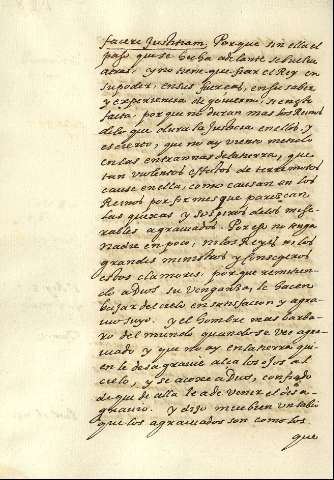 facere Justitiam, Porque sin ella el
paso que se echa adelante se vuelve
atras, y no tiene que fiar el Rey en
su poder, en sus fuerças, en su saber
y experiencia de govierno, si en esto
falta, porque no duran mas los Reinos
de lo que dura la Justicia en ellos, y
es cierto, que no ay viento metido
en las entrannas de la tierra, que
tan violentos efectos de terremotos
cause en ella, como causan en los
Reinos por firmes que parezcan
las quexas y suspiros de los mise-
rables agraviados. Por esso no tenga
nadie en poco, ni los Reyes, ni los
grandes ministros y consejeros
estos clamores, porque remitien-
do a Dios su vengança, le hacen
bajar del cielo en satisfacion y agra-
vio suyo. y el hombre mas barba-
ro del mundo quando se vee agra-
viado y que no ay en la tierra qui-
en le desagravie alça los ojos al
cielo, y se acoxe a Dios, confiado
de que de alla le a de venir el des a-
gravio. y dijo mui bien un sabio
que los agraviados son como los
que